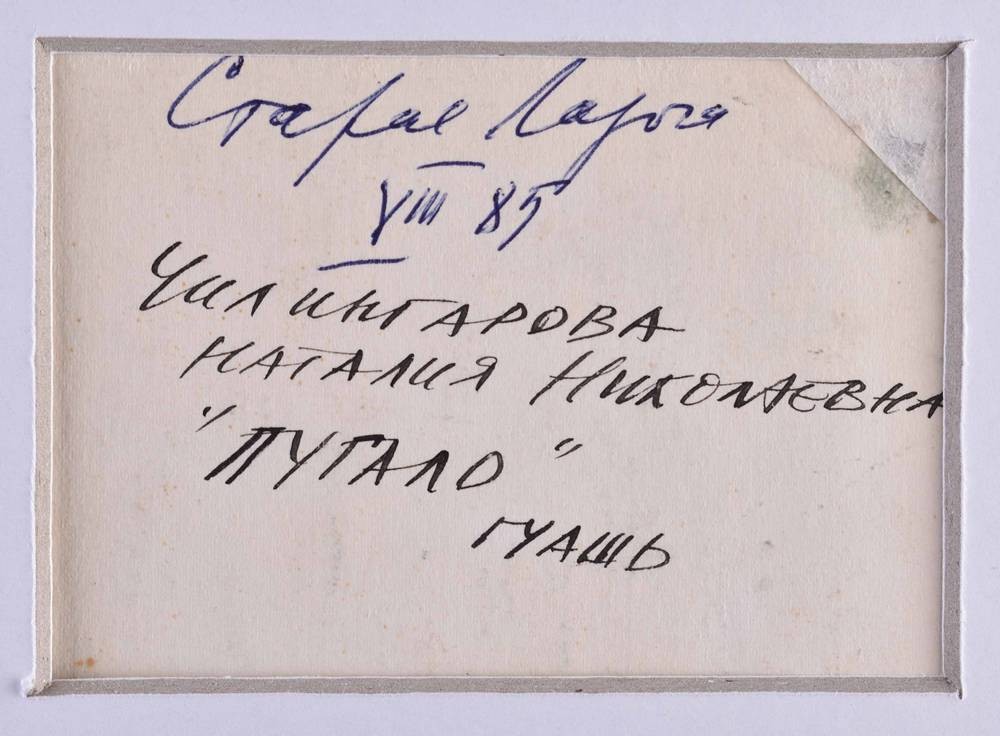 Старая Ладога
VIII 85
Чилингарова
Наталия Николаевна
"Пугало"
гуашь